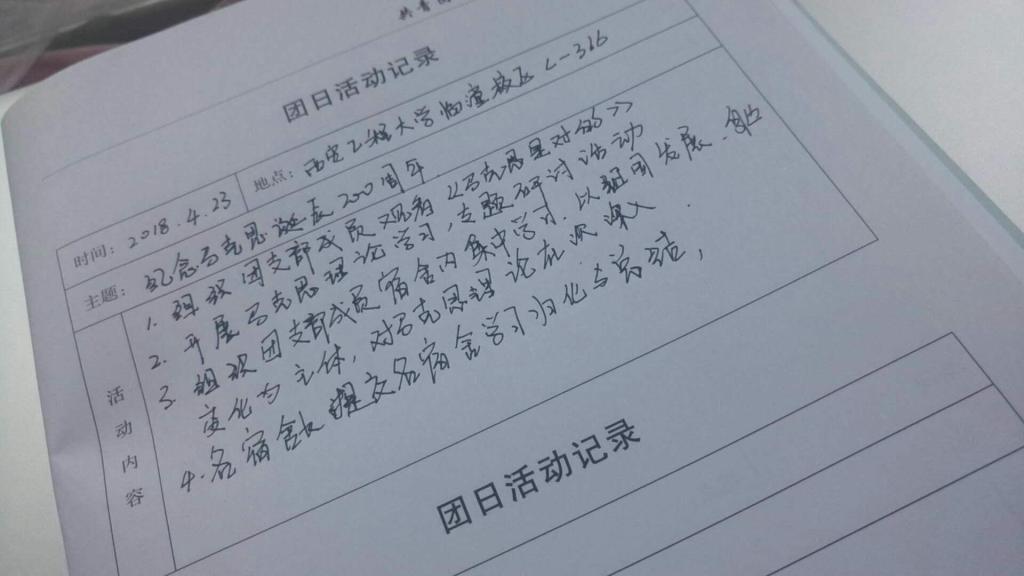 共青团
团日活动记录
时间：2018.4.23 地点：西安工程大学临潼校区 L-316
主题：纪念马克思诞辰200周年
活动内容
1. 组织团支部成员观看《马克思是对的》
2. 开展马克思理论学习，专题研讨活动
3. 组织团支部成员宿舍内集中学习，以祖国发展、自
变化为主体，对马克思理论在次深入.
4. 各宿舍长提交各宿舍学习归化与总结，
团日活动记录